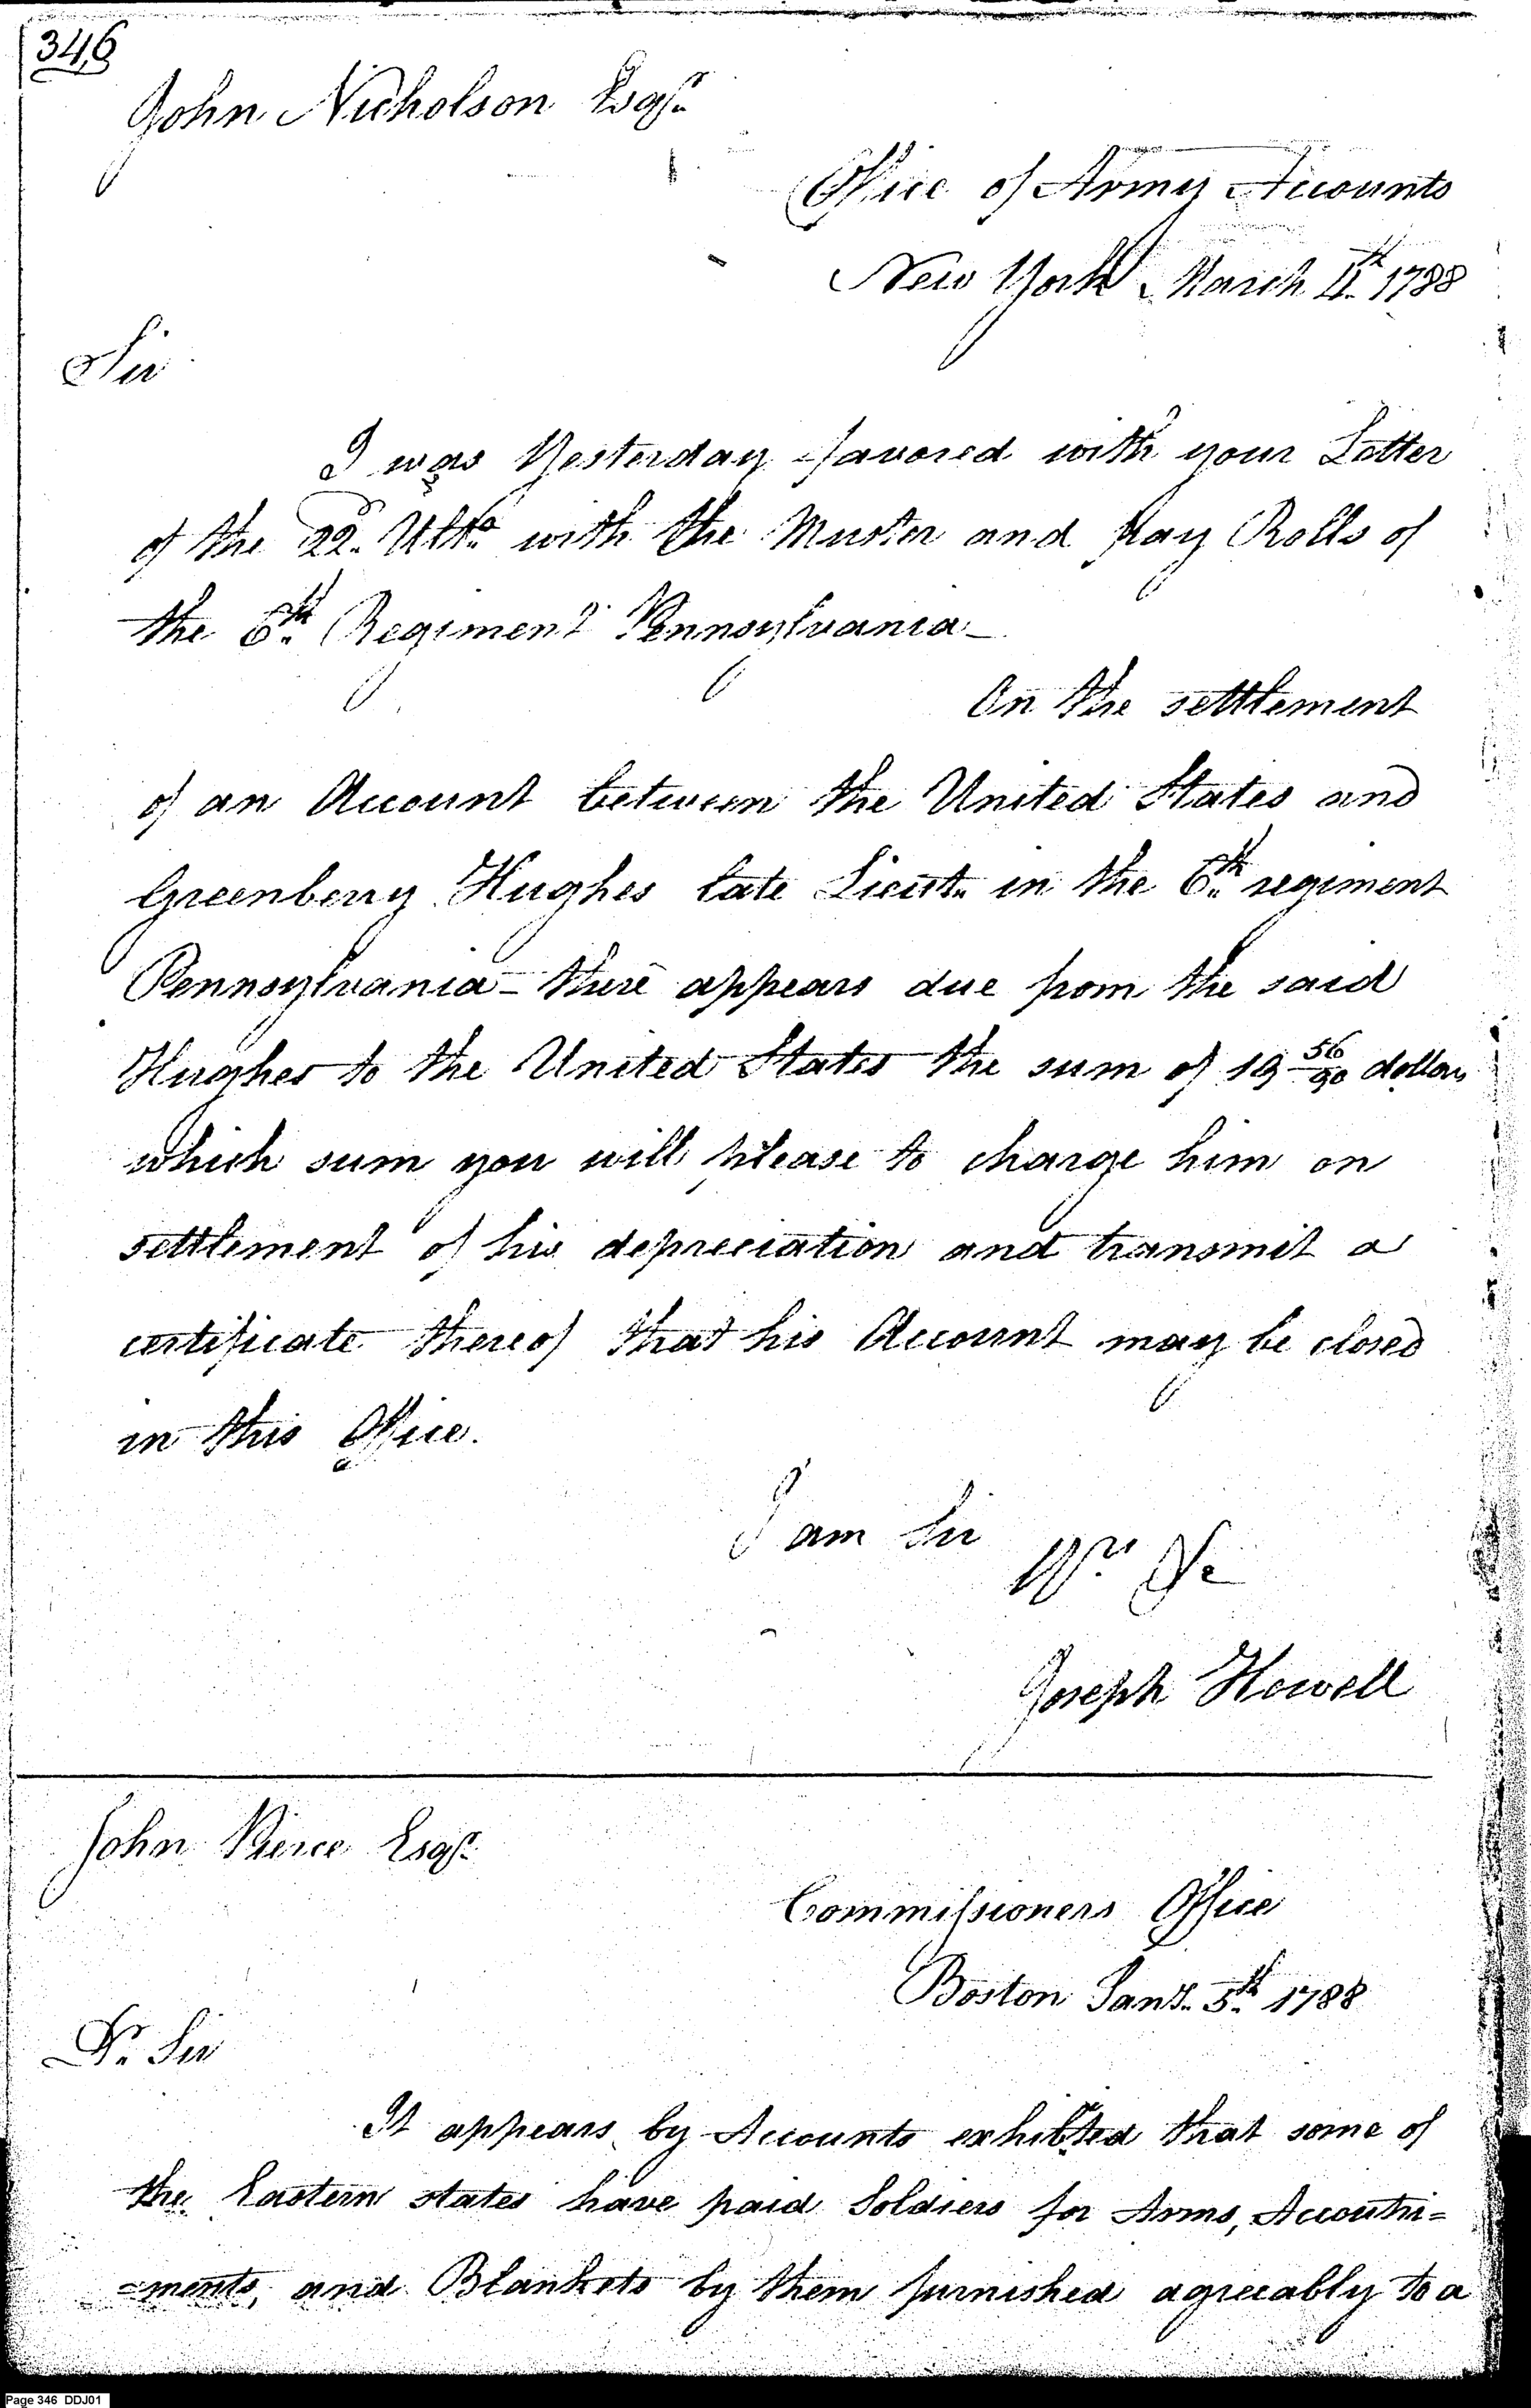 346
John Nicholson Esqr.
Office of Army Accounts
New York March 4th 1788
Sir
I was Yesterday favored with your Letter
of the 22d. Ulto. with the Muster and pay Rolls of
the 6th. Regiment Pennsylvania—
On the settlement
of an Account between the United States and
Greenberry Hughes late Lieut. in the 6th. regiment
Pennsylvania - there appears due from the said
Hughes to the United States the sum of 19 56/90 dollars
which sum you will please to charge him on
settlement of his depreciation and transmit a
certificate thereof that his Account may be closed
in this Office.
I am Sir
Yrs. &c
Joseph Howell
John Pierce Esqr.
Commissioners Office
Boston Jany. 5th. 1788
Dr. Sir
It appears by Accounts exhibted that some of
the Eastern states have paid Soldiers for Arms, Accoutri=
=ments, and Blankets by them furnished agreeably to a
Page 346 DDJ01